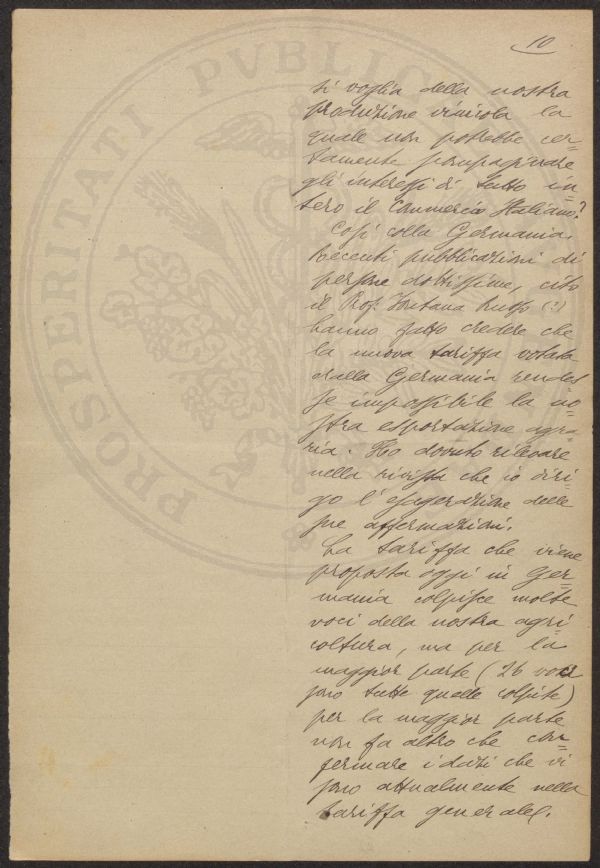 PROSPERITATI PVBLIC
10
si voglia della nostra
produzione vinicola la
quale non potrebbe cer=
tamente
gli interessi di tutto in=
tero il Commercio Italiano?
Così colla Germania.
Recenti pubblicazioni di
persone dottissime, cito
il Prof. Fontana Russo (:)
hanno fatto credere che
la nuova tariffa votata
dalla Germania rendes
se impossibile la no=
stra esportazione agra=
ria. Ho dovuto rilevare
nella rivista che io diri=
go l'esagerazione delle
sue affermazioni.
La tariffa che viene
proposta oggi in Ger=
mania colpisce molte
voci della nostra agri=
coltura, ma per la
maggior parte (26 voci
sono tutte quelle colpite)
per la maggior parte
non fa altro che con=
fermare i dazi che vi
sono attualmente nella
tariffa generale.